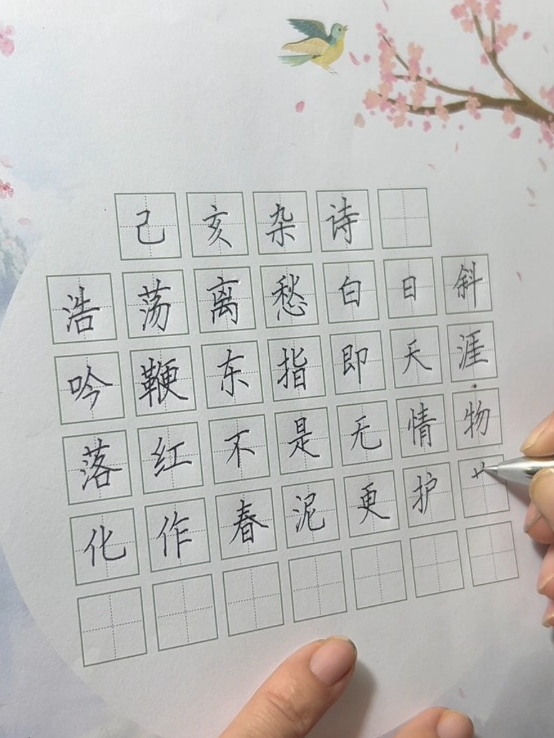 己亥杂诗
浩荡离愁白日斜
吟鞭东指即天涯.
落红不是无情物
化作春泥更护